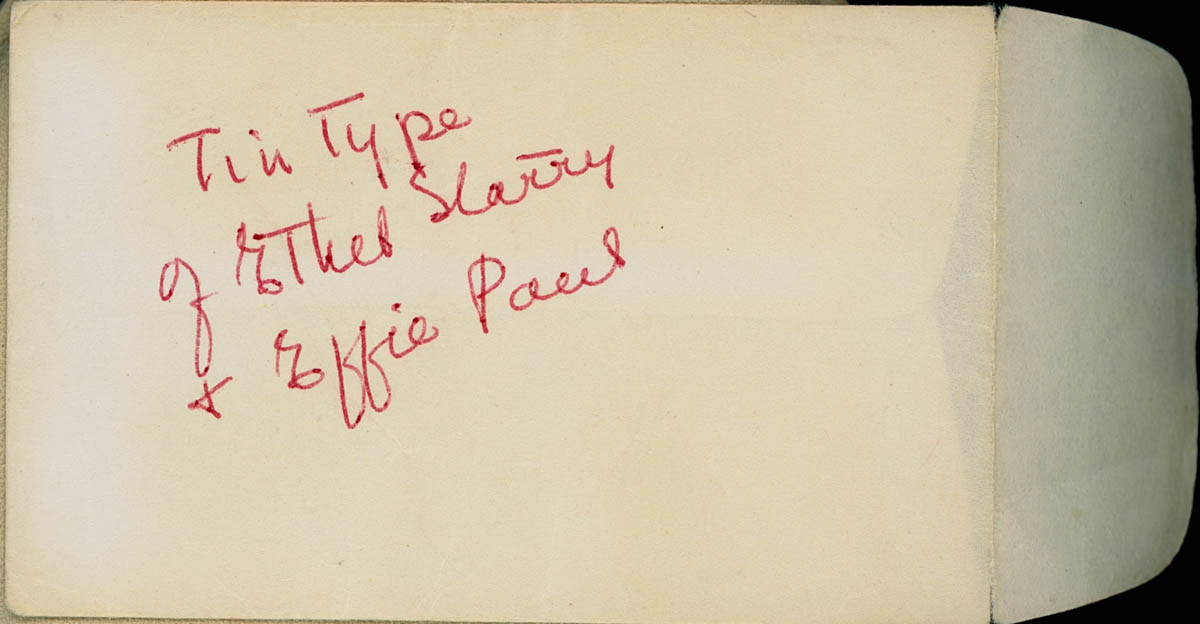 Tin Type
of Ethel Slattry
+ Effie Paul